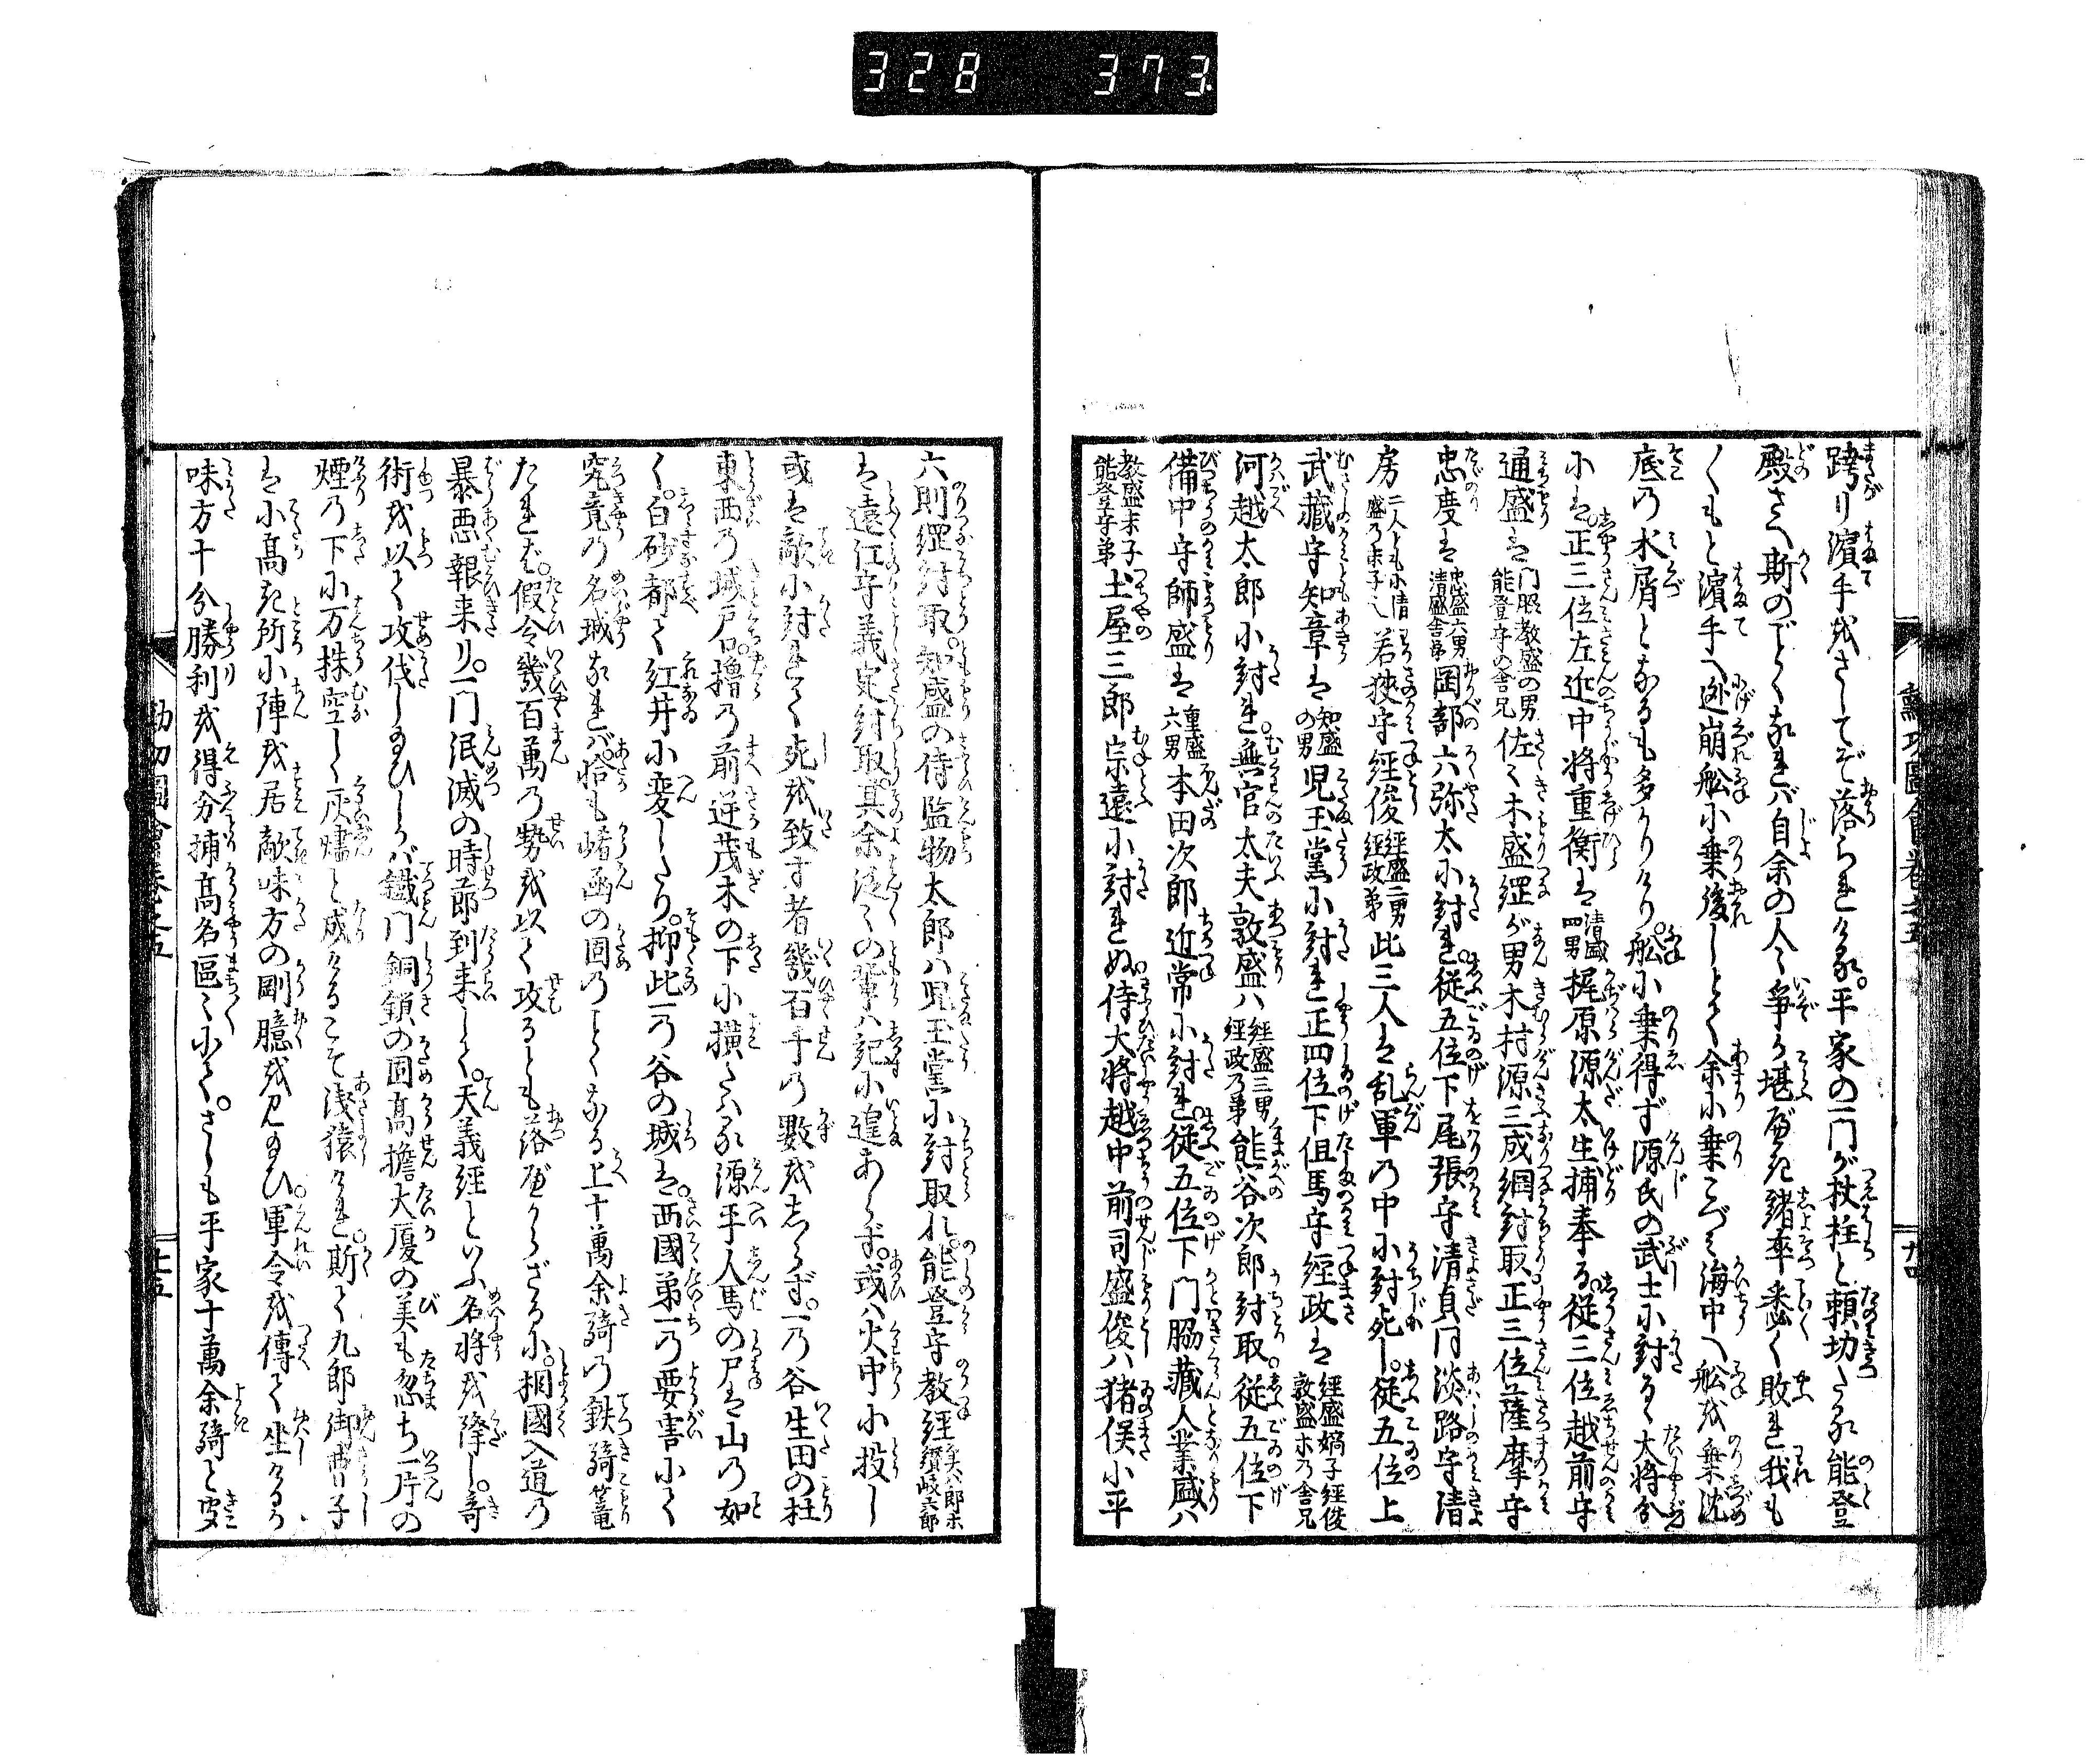 328 373
跨り濱手をさしてぞ落られける。平家の一門が杖柱と頼切たる能登
殿さへ斯のごとくなれバ自余の人々争か堪べき諸卒悉く敗れ我も
〱もと濱手へ迯崩船に乗後じとて余に乗こづミ海中へ船を乗沈
底の水屑となるも多かりけり。船に乗得ず源氏の武士に討るゝ大将分
にハ正三位左近中将重衡ハ清盛四男梶原源太生捕奉る。従三位越前守
通盛ハ門脇教盛の男能登守の舎兄佐々木盛綱が男木村源三成綱討取正三位薩摩守
忠度ハ忠盛六男清盛舎弟岡部六弥太に討れ。従五位下尾張守清貞同淡路守清
房二人とも小清盛の末子也若狭守経俊経盛二男経政弟此三人ハ乱軍の中に討死し。従五位上
武蔵守知章ハ知盛の男児玉黨に討れ正四位下但馬守経政ハ経盛嫡子経俊敦盛ホの舎兄
河越太郎に討れ。無官太夫敦盛ハ経盛三男経政の弟熊谷次郎討取。従五位下
備中守師盛ハ重盛六男本田次郎近常に討れ。従五位下門脇蔵人業盛ハ
教盛末子能登守弟土屋三郎宗遠に討れぬ。侍大将越中前司盛俊ハ猪俣小平
六則綱討取。知盛の侍監物太郎ハ児玉黨に討取れ。能登守教経
ハ遠江守義定討取。其余溌々の輩ハ記に遑あらず。或ハ火中に投し
或ハ敵に討れて死を致す者幾百千の數をしらず。一の谷生田の杜
東西の城戸口。櫓の前逆茂木の下に横たハる源平人馬の尸ハ山の如
く。白砂都て紅井に変したり。抑此一の谷の城ハ。西國第一の要害にて
究竟の名城なれバ。恰も崤函の固のごとくなる上十萬余騎の鉄騎篭
たれバ。假令幾百萬の勢を以て攻るとも落べからざるに。相國入道の
暴悪報来り。一門泯滅の時節到来して。天義経といふ名将を降し。奇
術を以て攻伐し給ひしかバ鐵門銅鎖の固高擔大廈の美も忽ち一片の
煙の下に万株空しく灰燼と成けるこそ浅猿けれ。斯て九郎御曹子
ハ小高き所に陣を居敵味方の剛臆を見給ひ。軍令を傳て坐けるが
味方十分勝利を得分捕高名區々にて。さしも平家十萬余騎と聞